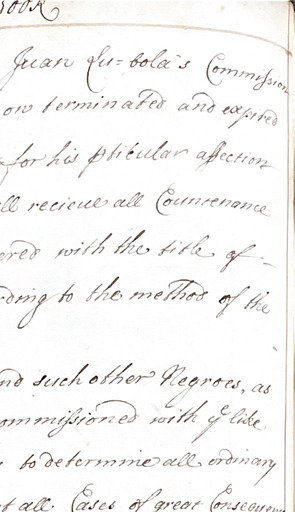 BOOK
Juan Lu=bola's Commission
on terminated and expired
for his pticular affection
ll recieue all Countenance
ered with the title of -
rding to the method of the
nd such other Negroes, as
ommissioned with ye like
to determine all ordinary
t all Cases of great Consequen